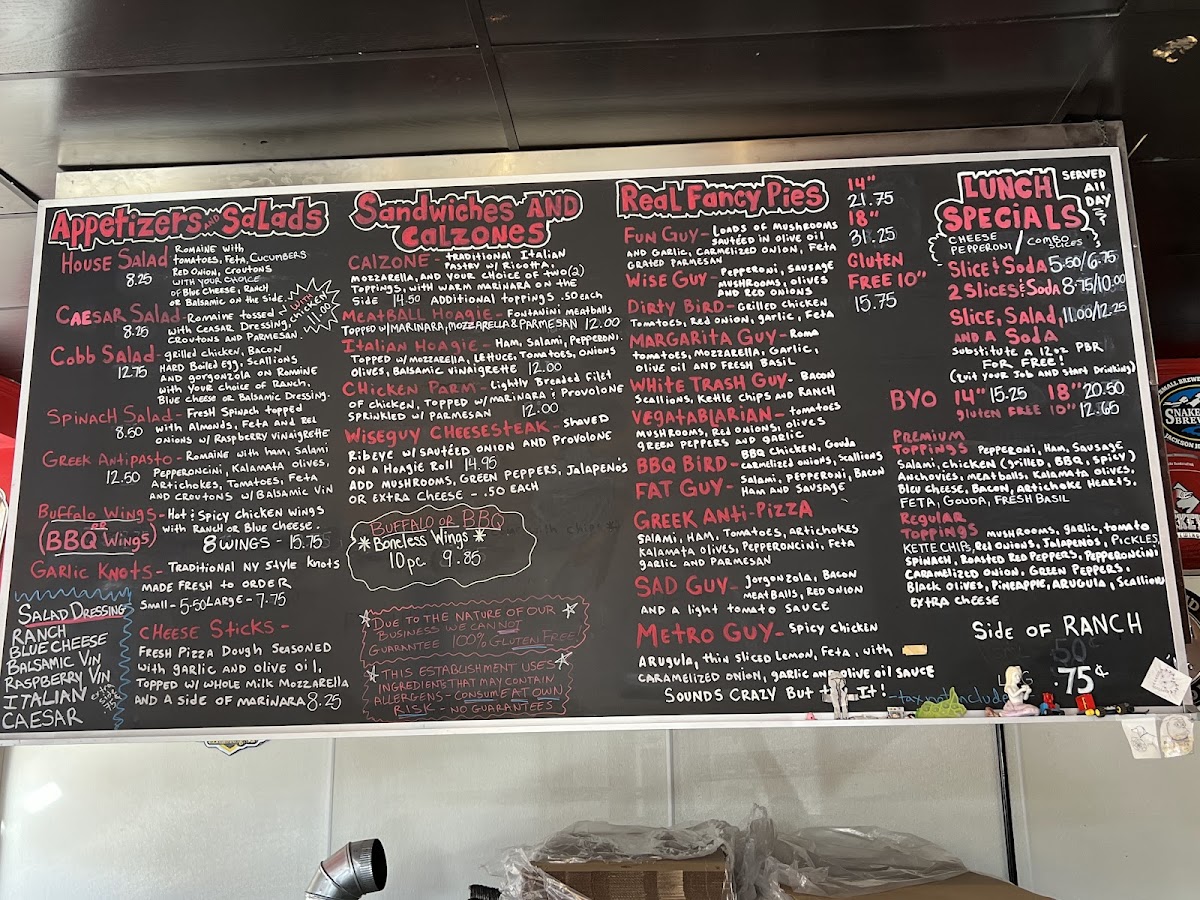 Appetizers AND Salads
House Salad Romaine with
tomatoes, Feta, Cucumbers
8.25 Red Onion, Croutons
with your choice
of Blue Cheese, Ranch
or Balsamic on the side.
Caesar Salad - Romaine tossed
8.25 with Ceasar Dressing,
Croutons and Parmesan
with chicken 11.00
Cobb Salad - grilled chicken, Bacon
12.75 Hard Boiled Egg, Scallions
and gorgonzola on Romaine
with your choice of Ranch,
Blue cheese or Balsamic Dressing.
Spinach Salad - Fresh Spinach topped
8.50 with Almonds, Feta and Red
onions w/ Raspberry Vinaigrette
Greek Antipasto - Romaine with ham, Salami
12.50 Pepperoncini, Kalamata olives,
Artichokes, Tomatoes, Feta
and croutons w/ Balsamic Vin
Buffalo Wings - Hot & Spicy chicken wings
or with Ranch or Blue cheese.
(BBQ Wings) 8 wings - 15.75
Garlic Knots - Traditional NY Style knots
made fresh to order
Small - 5.50 Large - 7.75
Cheese Sticks -
Fresh Pizza Dough Seasoned
with garlic and olive oil,
Topped w/ whole milk Mozzarella
and a side of marinara 8.25
Salad Dressing
Ranch
Blue Cheese
Balsamic Vin
Raspberry Vin
Italian
Caesar
Sandwiches AND
Calzones
Calzone - traditional Italian
Pastry w/ Ricotta,
mozzarella, and your choice of two(2)
Toppings, with warm marinara on the
side 14.50 Additional toppings .50 each
Meatball Hoagie - Fontanini meatballs
Topped w/ marinara, mozzarella & parmesan 12.00
Italian Hoagie - Ham, Salami, Pepperoni.
Topped w/ mozzarella, lettuce, tomatoes, onions
olives, Balsamic vinaigrette 12.00
Chicken Parm - Lightly Breaded Filet
of chicken, Topped w/ marinara & Provolone
Sprinkled w/ Parmesan 12.00
Wiseguy Cheesesteak - Shaved
Ribeye w/ sautéed onion and Provolone
on a Hoagie Roll 14.95
Add mushrooms, green peppers, Jalapeno's
or extra cheese - .50 each
Buffalo or BBQ
*Boneless Wings*
10pc. 9.85
Due to the nature of our
business we cannot
guarantee 100% Gluten Free
*This establishment uses
ingredients that may contain
allergens - consume at own
risk - no guarantees
Real Fancy Pies
14"
21.75
18"
31.25
Gluten
Free 10"
15.75
Fun Guy - Loads of mushrooms
sautéed in olive oil
and garlic, carmelized onion, Feta
grated parmesan
Wise Guy - Pepperoni, sausage
mushrooms, olives
and red onions
Dirty Bird - Grilled chicken
Tomatoes, Red onion, garlic, Feta
Margarita Guy - Roma
tomatoes, mozzarella, Garlic,
olive oil and fresh Basil
White Trash Guy - Bacon
Scallions, Kettle chips and Ranch
Vegatablarian - tomatoes
mushrooms, Red onions, olives
green peppers and garlic
BBQ Bird - BBQ Chicken, Gouda
carmelized onions, scallions
Fat Guy - Salami, Pepperoni, Bacon
Ham and Sausage
Greek Anti-Pizza
Salami, Ham, Tomatoes, artichokes
Kalamata olives, Pepperoncini, Feta
garlic and parmesan
Sad Guy - Jorgonzola, Bacon
meatballs, Red onion
and a light tomato sauce
Metro Guy - Spicy chicken
Arugula, thin sliced Lemon, Feta, with
caramelized onion, garlic and olive oil sauce
Sounds crazy but It!
Lunch
Specials
Served
All
Day
Cheese
Pepperoni / combo slices
Slice & Soda 5.50/6.75
2 Slices & Soda 8.75/10.00
Slice, Salad, 11.00/12.25
and a Soda
Substitute a 12oz PBR
For FREE!
(Quit your Job and Start Drinking)
BYO 14" 15.25 18" 20.50
gluten free 10" 12.65
Premium
Toppings Pepperoni, Ham, Sausage
Salami, chicken (grilled, BBQ, spicy)
Anchovies, meatballs, Kalamata olives,
Bleu cheese, Bacon, artichoke hearts.
Feta, Gouda, Fresh Basil
Regular
Toppings mushrooms, garlic, tomato
Kette chips, Red onions, Jalapenos, Pickles,
Spinach, Roasted Red Peppers, Pepperoncini
Caramelized onion, Green Peppers,
Black olives, Pineapple, Arugula, Scallions
extra cheese
Side of RANCH
50¢
.75¢
-tax not included
SNAKE
BREW
JACKSON H